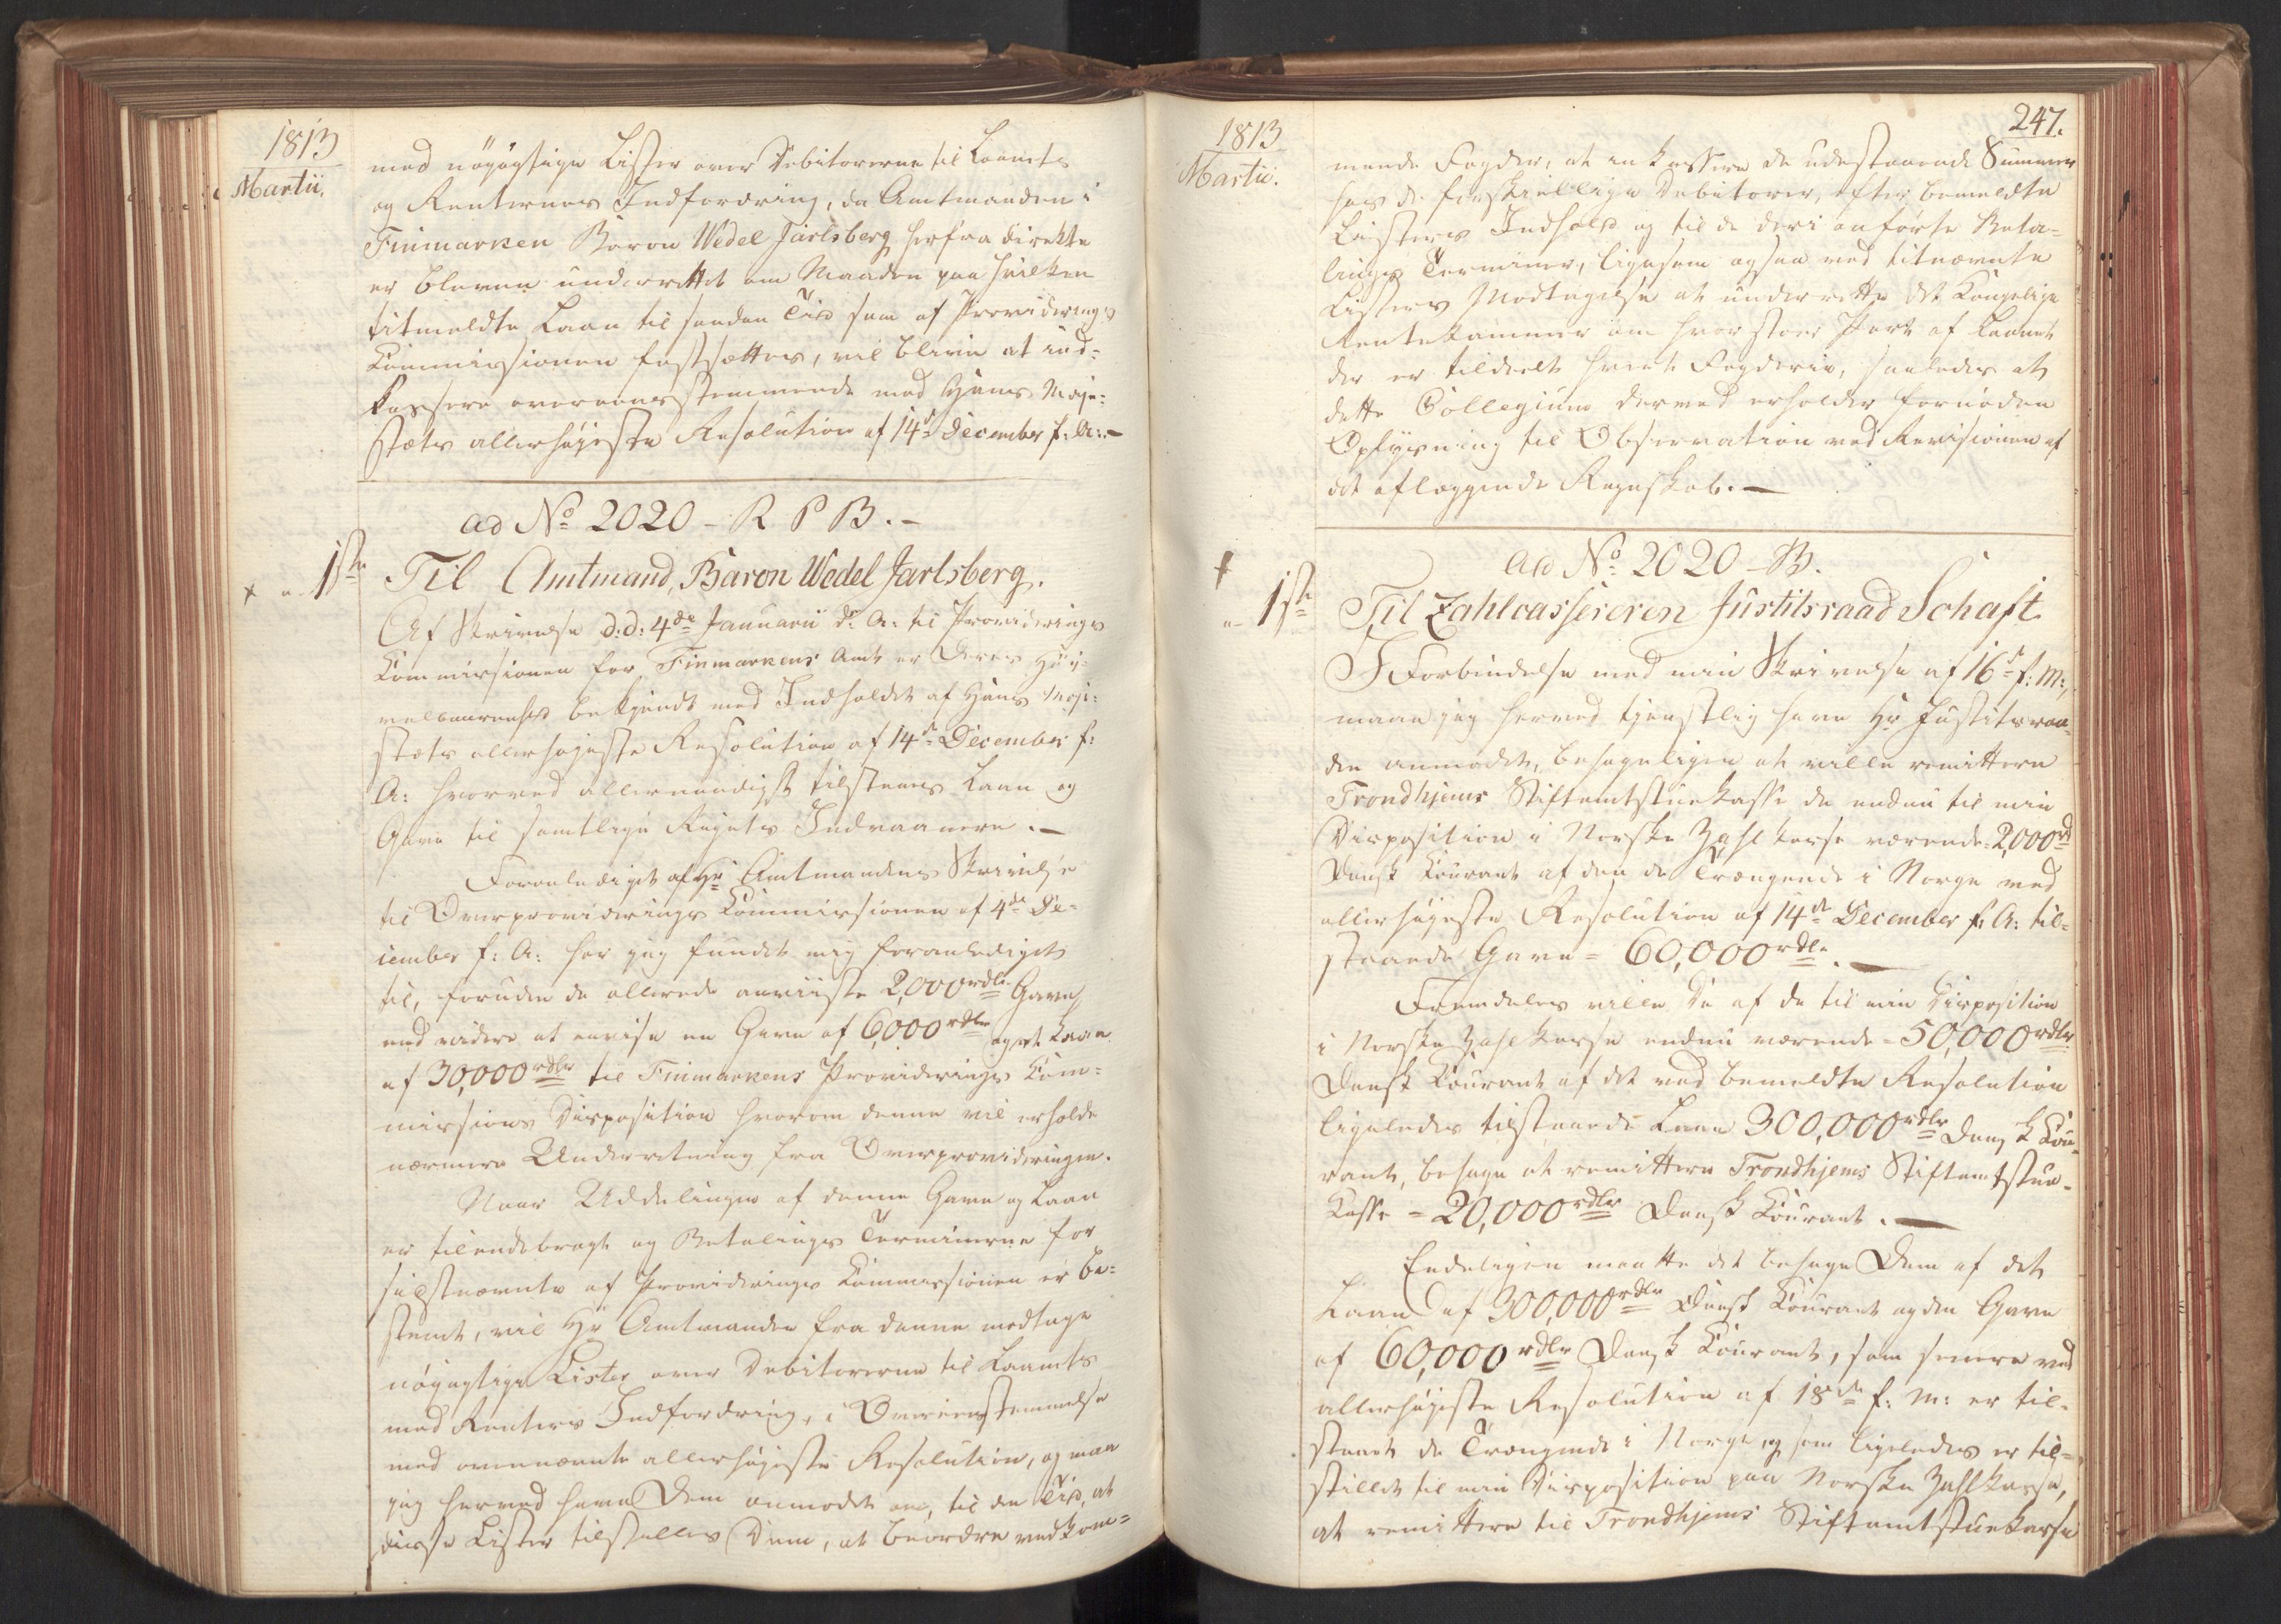 1813
Martii.
med nöyagtige Lister over Debitorerne til Laanets
og Renternes Indfordring, da Amtmanden i
Finmarken Baron Wedel Jarlsberg herfra direkte
er bleven underrettet om Maaden paa hvilken
titmeldte Laan til sanden Tiid som af Providerings
Kommissionen fastsættes, vil blive at ind=
kassere overeensstemmende med Hans Maje=
stæts allerhøjeste Resolution af 14de December f: A:. —
ad No 2020 - R P B. -
1ste Til Amtmand, Baron Wedel Jarlsberg.
Af Skrivelse d: d: 4de Januarii d: A: til Providerings
Kommissionen for Finmarkens Amt er Deres Høy=
velbaarenhed bekjendt med Indholdet af Hans Maje=
stæts allerhøjeste Resolution af 14de December f:
A: hvorved allernaadigst tilstaaes Laan og
Gave til samtlige Rigets Indvaanere. —
Foranlediget af Hr Amtmandens Skrivelse
til Overproviderings Kommissionen af 4de De=
cember f: A: har jeg fundet mig foranlediget
til, foruden de allerede anviiste 2,000 rdlr Gave,
end videre at anvise en Gave af 6,000 rdlr og et Laan
af 30,000 rdlr til Finmarkens Providerings Kom=
missions Disposition hvorom denne vil erholde
nærmere Underretning fra Overprovideringen.
Naar Uddelingen af denne Gave og Laan
er tilendebragt og Betalings Terminerne for
sidstnævnte af Providerings Kommissionen er be=
stemt, vil Hr Amtmanden fra denne modtage
nöyagtige Lister over Debitorerne til Laanets
med Renters Indfordring, i Overeensstemmelse
med ovennævnte allerhøjeste Resolution, og maa
jeg herved have Dem anmodet om, til den Tiid, at
disse Lister tilstilles Dem, at beordre vedkom=
1813
Martii.
247.
mende Fogder, at inkassere de udestaaende Summer
hos de forskiellige Debitorer, efter bemeldte
Listers Indhold og til de deri anførte Beta=
lings Terminer, ligesom ogsaa ved titnævnte
Listers Modtagelse at underrette det Kongelige
Rentekammer om hvor stor Part af Laanet
der er tildeelt hvert Fogderie, saaledes at
dette Collegium derved erholder fornöden
Oplysning til Observation ved Revisionen af
det aflæggende Regnskab. —
ad No 2020 - B.
1ste Til Zahlcassereren Justitsraad Schaft
I Forbindelse med min Skrivelse af 16de f: M:,
maa jeg herved tjenstlig have Hr Justitsraa=
den anmodet, behageligen at ville remittere
Trondhjems Stiftamtstuekasse de endnu til min
Disposition i Norske Zahlkasse værende 2,000 rd
Dansk Kourant af den de Trængende i Norge ved
allerhøjeste Resolution af 14de December f: A: til=
staaede Gave = 60,000 rdlr. —
Fremdeles ville De af de til min Disposition
i Norske Zahlkasse endnu værende = 50,000 rdlr
Dansk Kourant af det ved bemeldte Resolution
ligeledes tilstaaede Laan 300,000 rdlr Dansk Kou=
rant, behage at remittere Trondhjems Stiftamtstue=
Kasse = 20,000 rdlr Dansk Kourant. —
Endeligen maatte det behage Dem af det
Laan af 300,000 rdlr Dansk Kourant og den Gave
af 60,000 rdlr Dansk Kourant, som senere ved
allerhøjeste Resolution af 18de f: M: er til=
staaet de Trængende i Norge og som ligeledes er til=
stillet til min Disposition paa Norske Zahlkasse,
at remittere til Trondhjems Stiftamtstuekasse